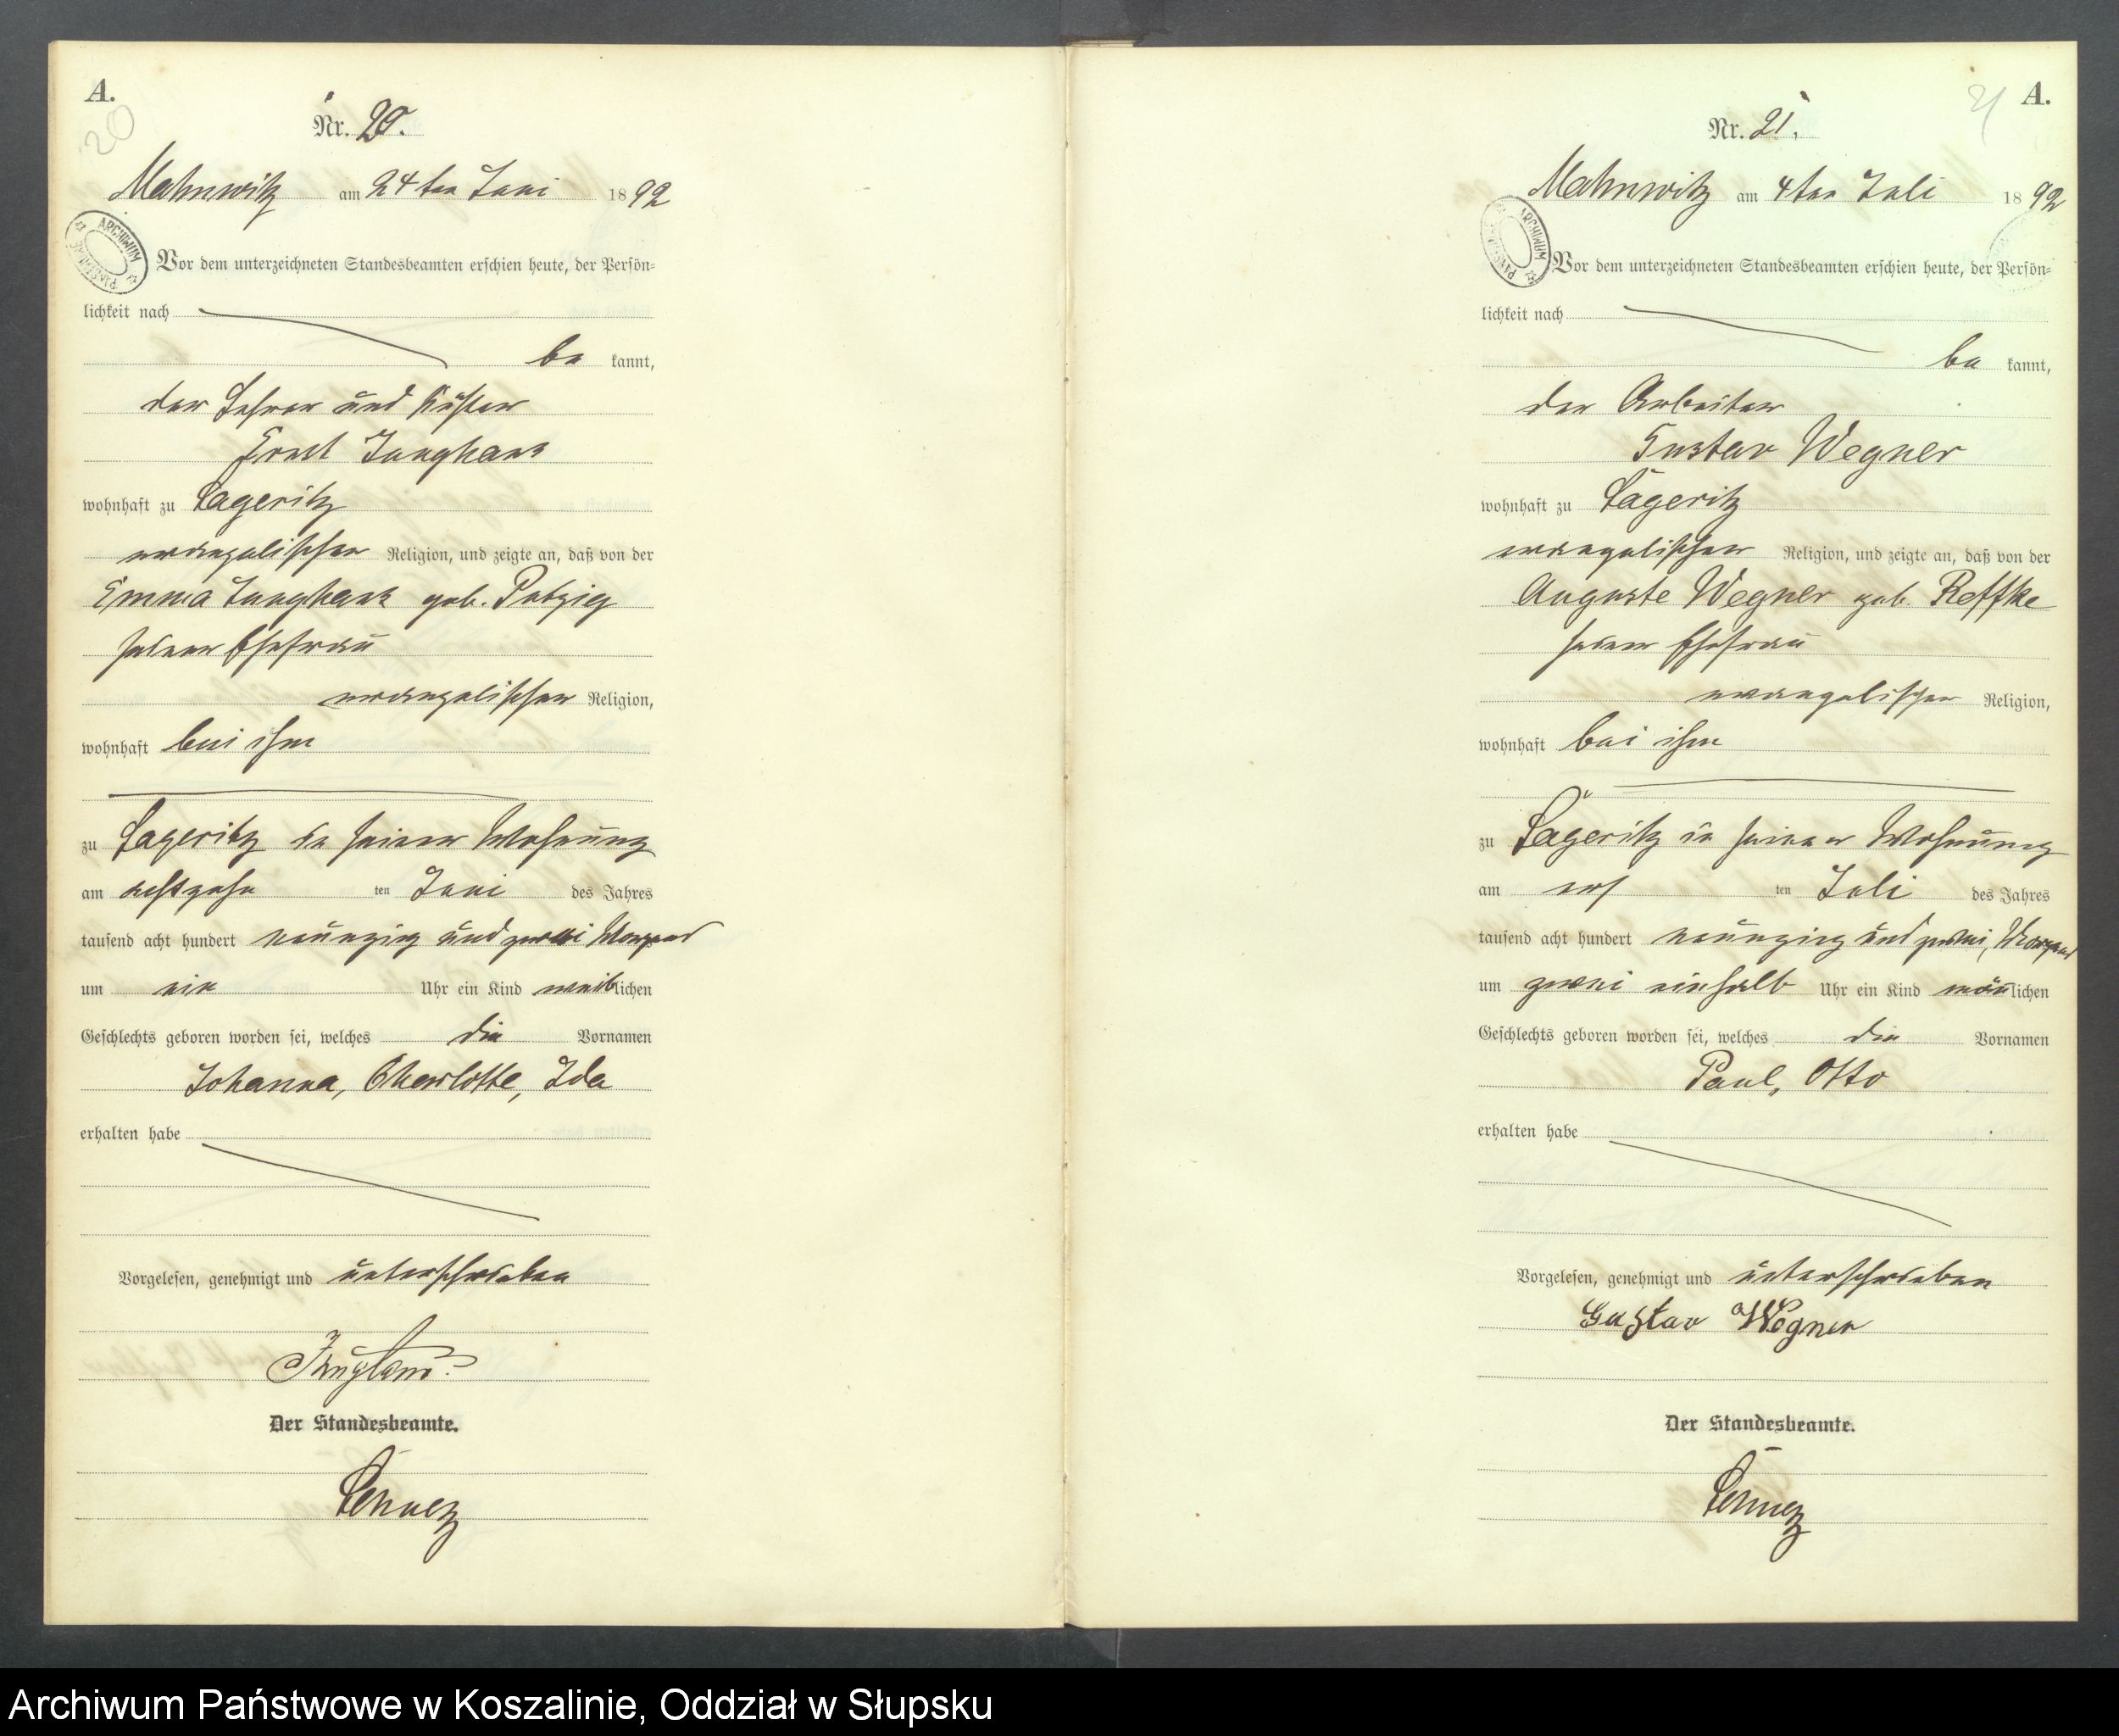 A.
20
Nr. 20.
Mahnwitz am 24ten Juni 1892
ARCHIWUM PAŃSTWOWE
Vor dem unterzeichneten Standesbeamten erschien heute, der Persön=
lichkeit nach
be kannt,
der Lehrer und Küster
Ernst Junghans
wohnhaft zu Lageritz
evangelischer Religion, und zeigte an, daß von der
Emma Junghans geb. Putzig
seiner Ehefrau
evangelischer Religion,
wohnhaft bei ihm
zu Lageritz in seiner Wohnung
am achtzehn ten Juni des Jahres
tausend acht hundert neunzig und zwei Morgens
um ein Uhr ein Kind weiblichen
Geschlechts geboren worden sei, welches die Vornamen
Johanna, Charlotte, Ida
erhalten habe
Vorgelesen, genehmigt und unterschrieben
Junghans.
Der Standesbeamte.
A.
21
Nr. 21.
Mahnwitz am 4ten Juli 1892
ARCHIWUM PAŃSTWOWE
Vor dem unterzeichneten Standesbeamten erschien heute, der Persön=
lichkeit nach
be kannt,
der Arbeiter
Gustav Wegner
wohnhaft zu Lageritz
evangelischer Religion, und zeigte an, daß von der
Auguste Wegner geb. Reffke
seiner Ehefrau
evangelischer Religion,
wohnhaft bei ihm
zu Lageritz in seiner Wohnung
am ers ten Juli des Jahres
tausend acht hundert neunzig und zwei, Morgens
um zwei einhalb Uhr ein Kind mänlichen
Geschlechts geboren worden sei, welches die Vornamen
Paul, Otto
erhalten habe
Vorgelesen, genehmigt und unterschrieben
Gustav Wegner
Der Standesbeamte.
Archiwum Państwowe w Koszalinie, Oddział w Słupsku